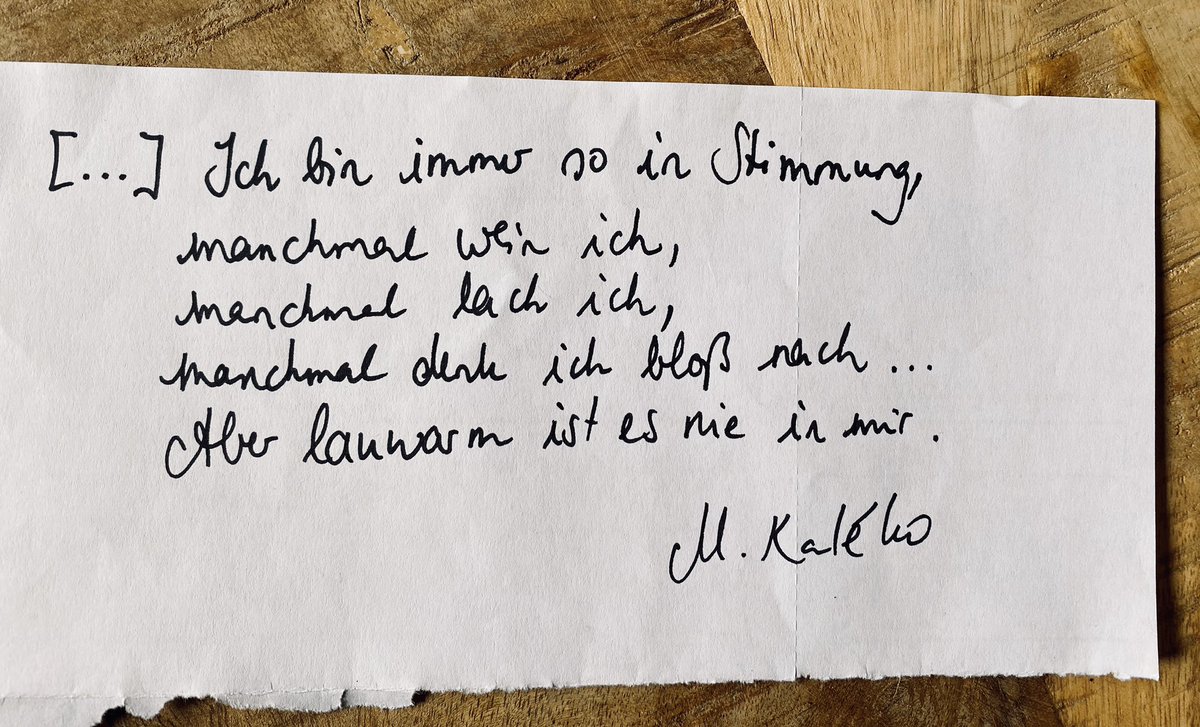 [...] Ich bin immer so in Stimmung,
manchmal wein ich,
manchmal lach ich,
manchmal denk ich bloß nach ...
Aber lauwarm ist es nie in mir.
M. Kaléko